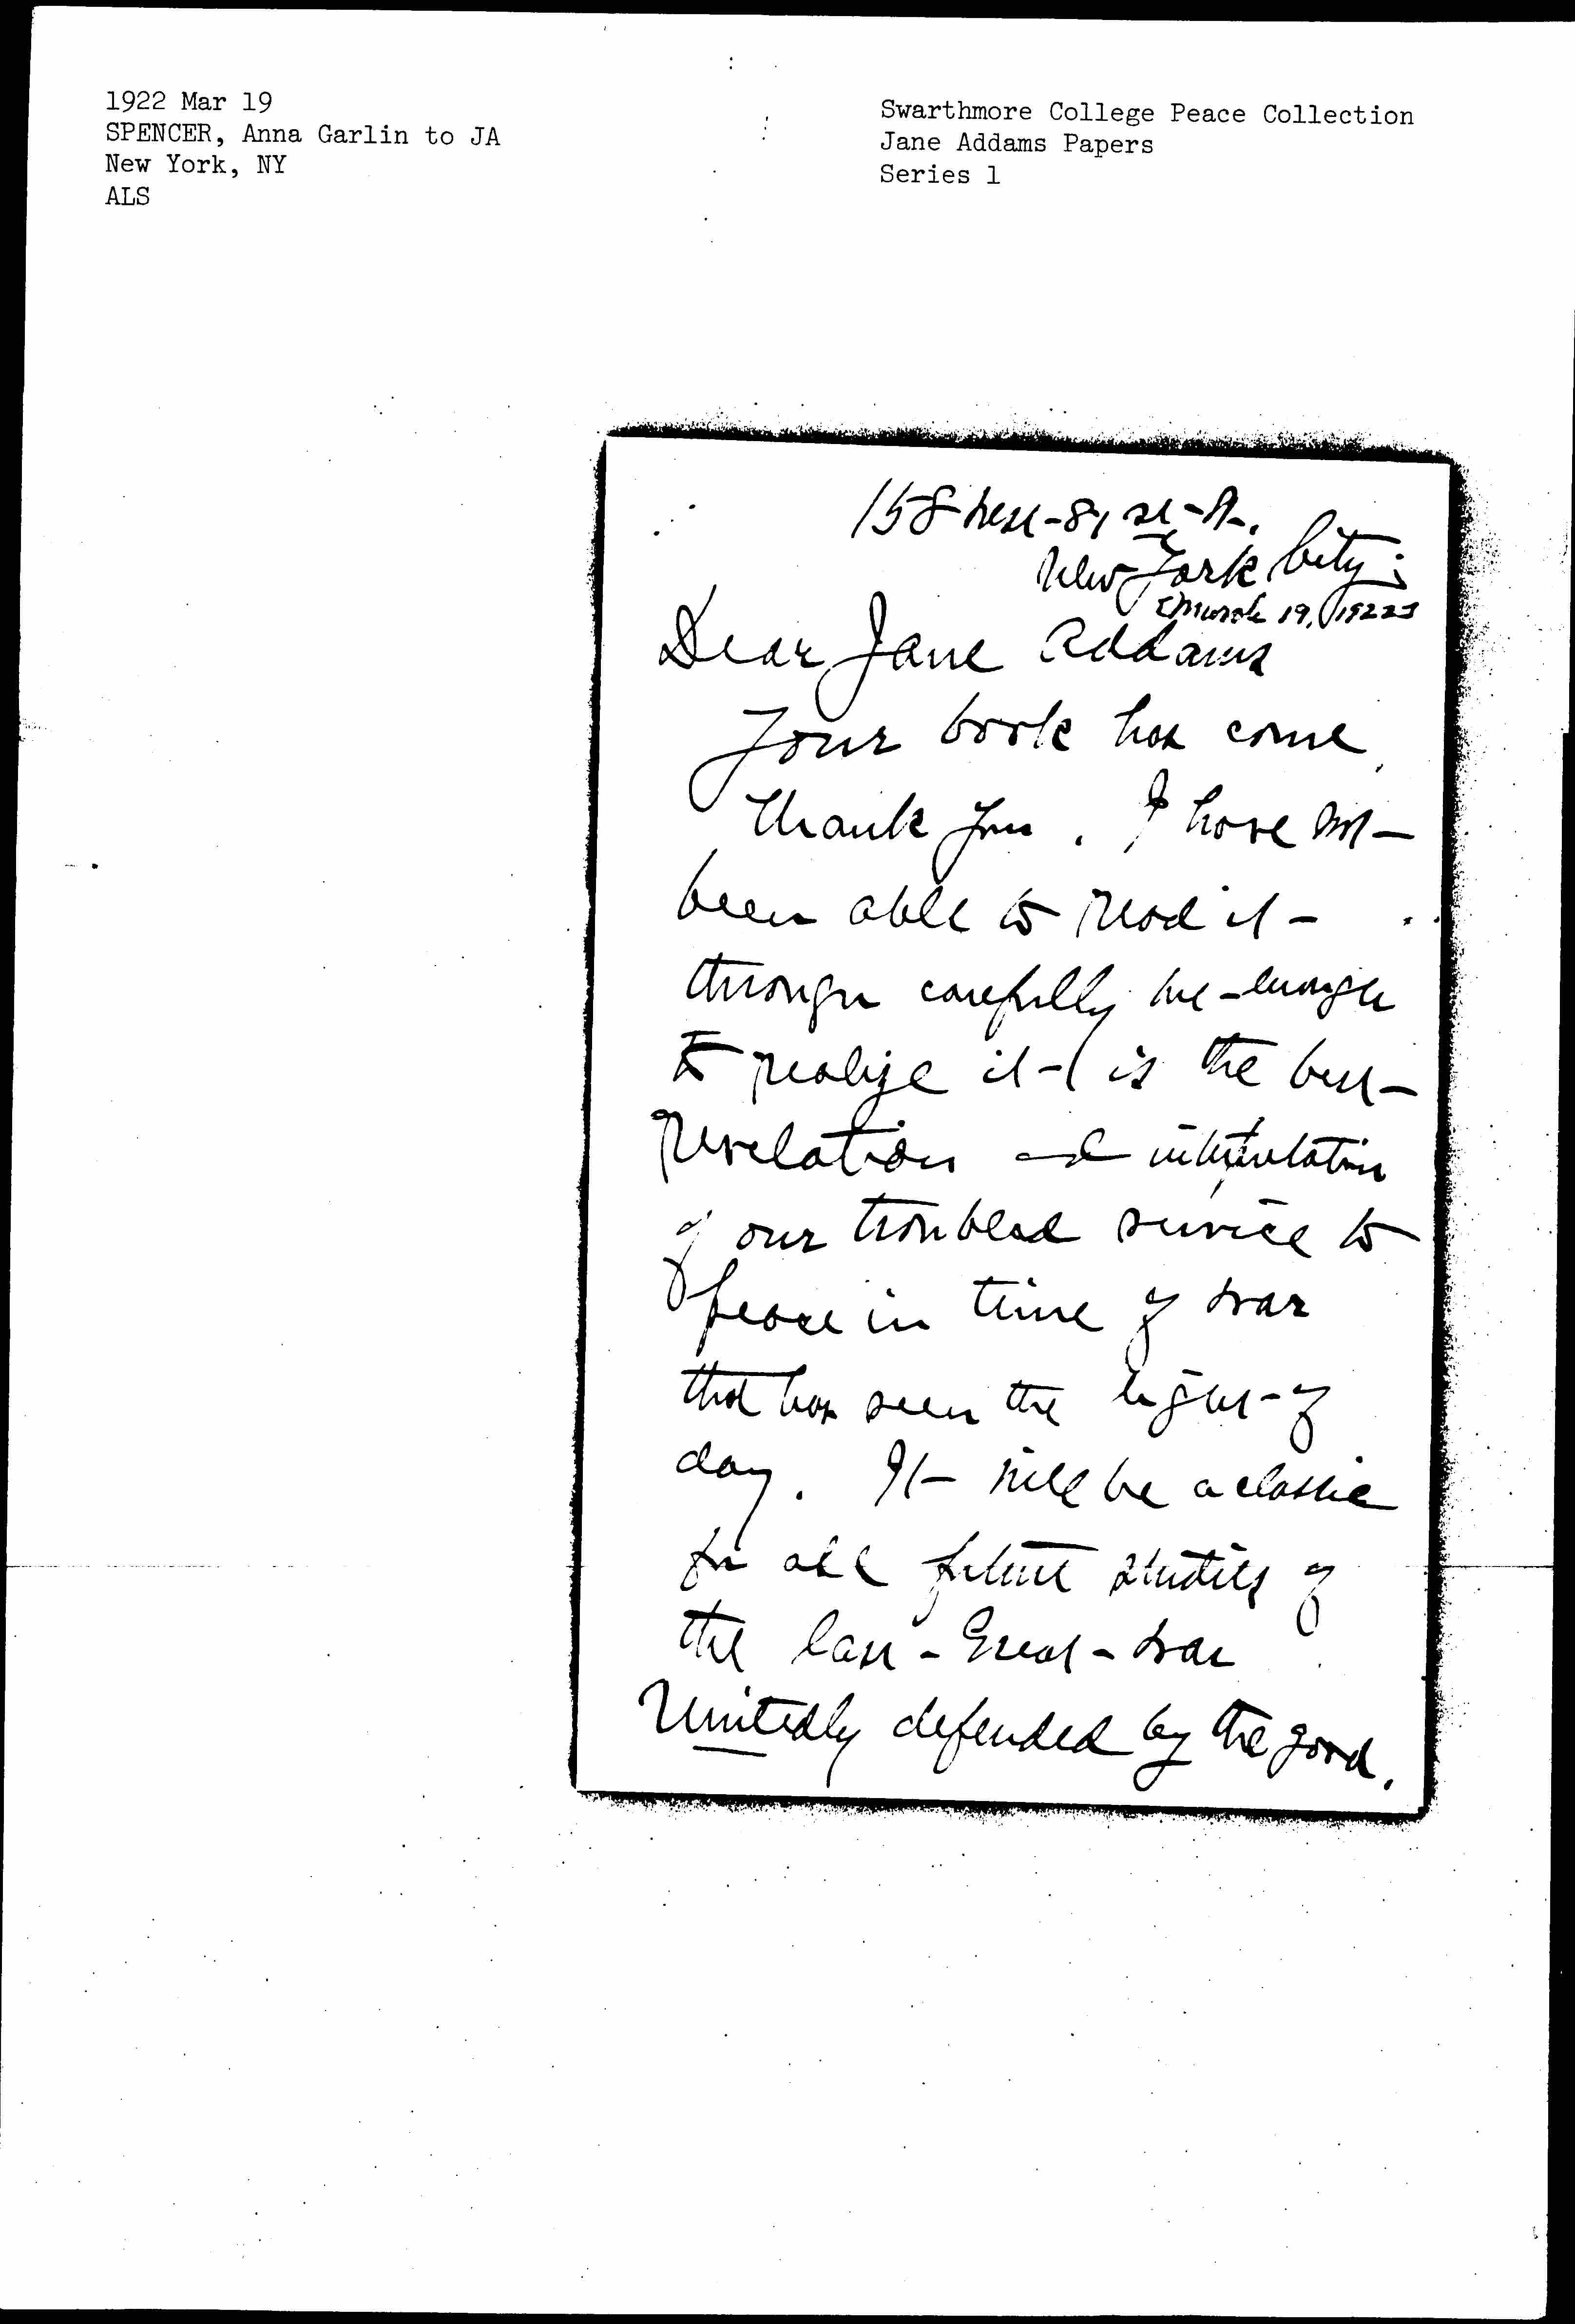 1922 Mar 19
SPENCER, Anna Garlin to JA
New York, NY
ALS
Swarthmore College Peace Collection
Jane Addams Papers
Series 1
158 West 81 st St.
New York City;
[March 19, 1922]
Dear Jane Addams
Your book has come,
Thank you. I have not
been able to read it
through carefully but enough
to realize it is the best
revelation and interpretation
of our troubled service to
peace in time of war
that has seen the light of
day. It will be a classic
for all future studies of
the last Great war
Unitedly defended by the good.